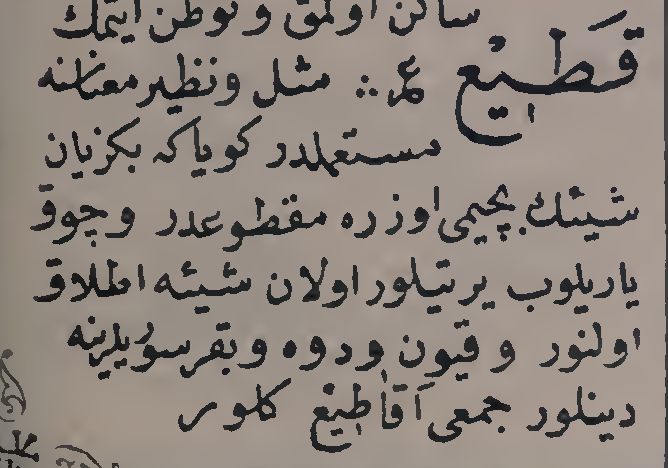 ساكن اولمق و توطن ايتمك
قَطِيْع عمـ مثل و نظير معناسنه
مستعملدر كويا كه بكزيان
شيئك بچيمى اوزره مقطوعدر و چوق
ياريلوب يرتيلور اولان شيئه اطلاق
اولنور و قيون و دوه و بقر سوريلرينه
دينلور جمعى اَقَاطِيْع كلور